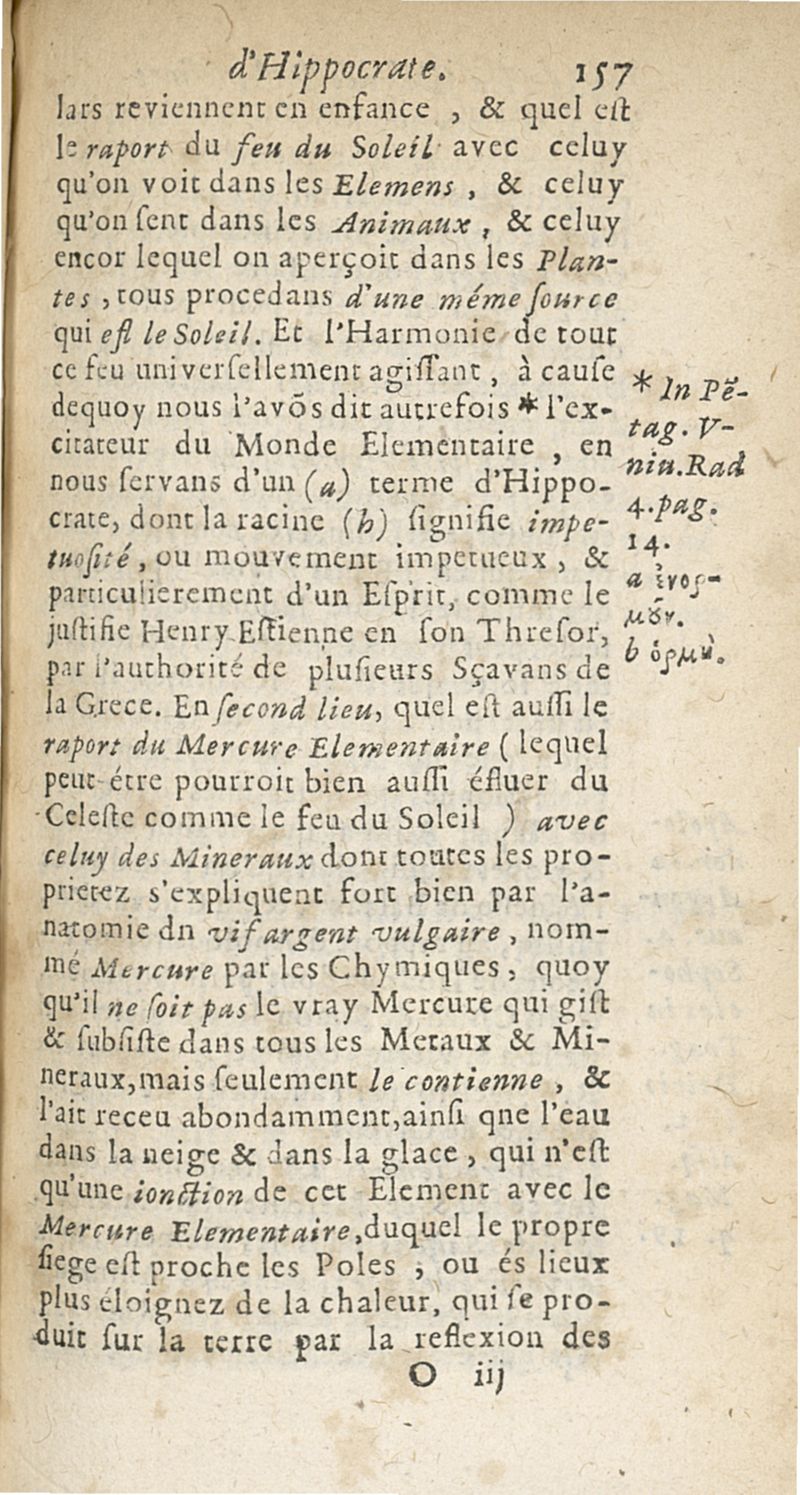 d'Hippocrate. 157
lars reviennent en enfance , & quel eſt
le raport du feu du Soleil avec celuy
qu'on voit dans les Elemens , & celuy
qu'on ſent dans les Animaux , & celuy
encor lequel on aperçoit dans les Plan-
tes , tous procedans d'une méme ſource
qui eſt le Soleil. Et l'Harmonie de tout
ce feu univerſellement agiſſant , à cauſe
dequoy nous l'avõs dit autrefois * l'ex-
citateur du Monde Elementaire , en
nous ſervans d'un (a) terme d'Hippo-
crate, dont la racine (h) ſignifie impe-
tuoſité , ou mouvement impetueux , &
particulierement d'un Eſprit, comme le
juſtifie Henry Eſtienne en ſon Threſor,
par l'authorité de pluſieurs Sçavans de
la Grece. En ſecond lieu, quel eſt auſſi le
raport du Mercure Elementaire ( lequel
peut-étre pourroit bien auſſi éfluer du
Celeſte comme le feu du Soleil ) avec
celuy des Mineraux dont toutes les pro-
prietez s'expliquent fort bien par l'a-
natomie dn vif argent vulgaire , nom-
mé Mercure par les Chymiques , quoy
qu'il ne ſoit pas le vray Mercure qui giſt
& ſubſiſte dans tous les Metaux & Mi-
neraux,mais ſeulement le contienne , &
l'ait receu abondamment,ainſi qne l'eau
dans la neige & dans la glace , qui n'eſt
qu'une ionction de cet Element avec le
Mercure Elementaire,duquel le propre
ſiege eſt proche les Poles , ou és lieux
plus éloignez de la chaleur, qui ſe pro-
duit ſur la terre par la reflexion des
O iij
* In Pẽ-
tag. V-
niu. Rad
4. pag.
14.
a
b ὁρμὴ.